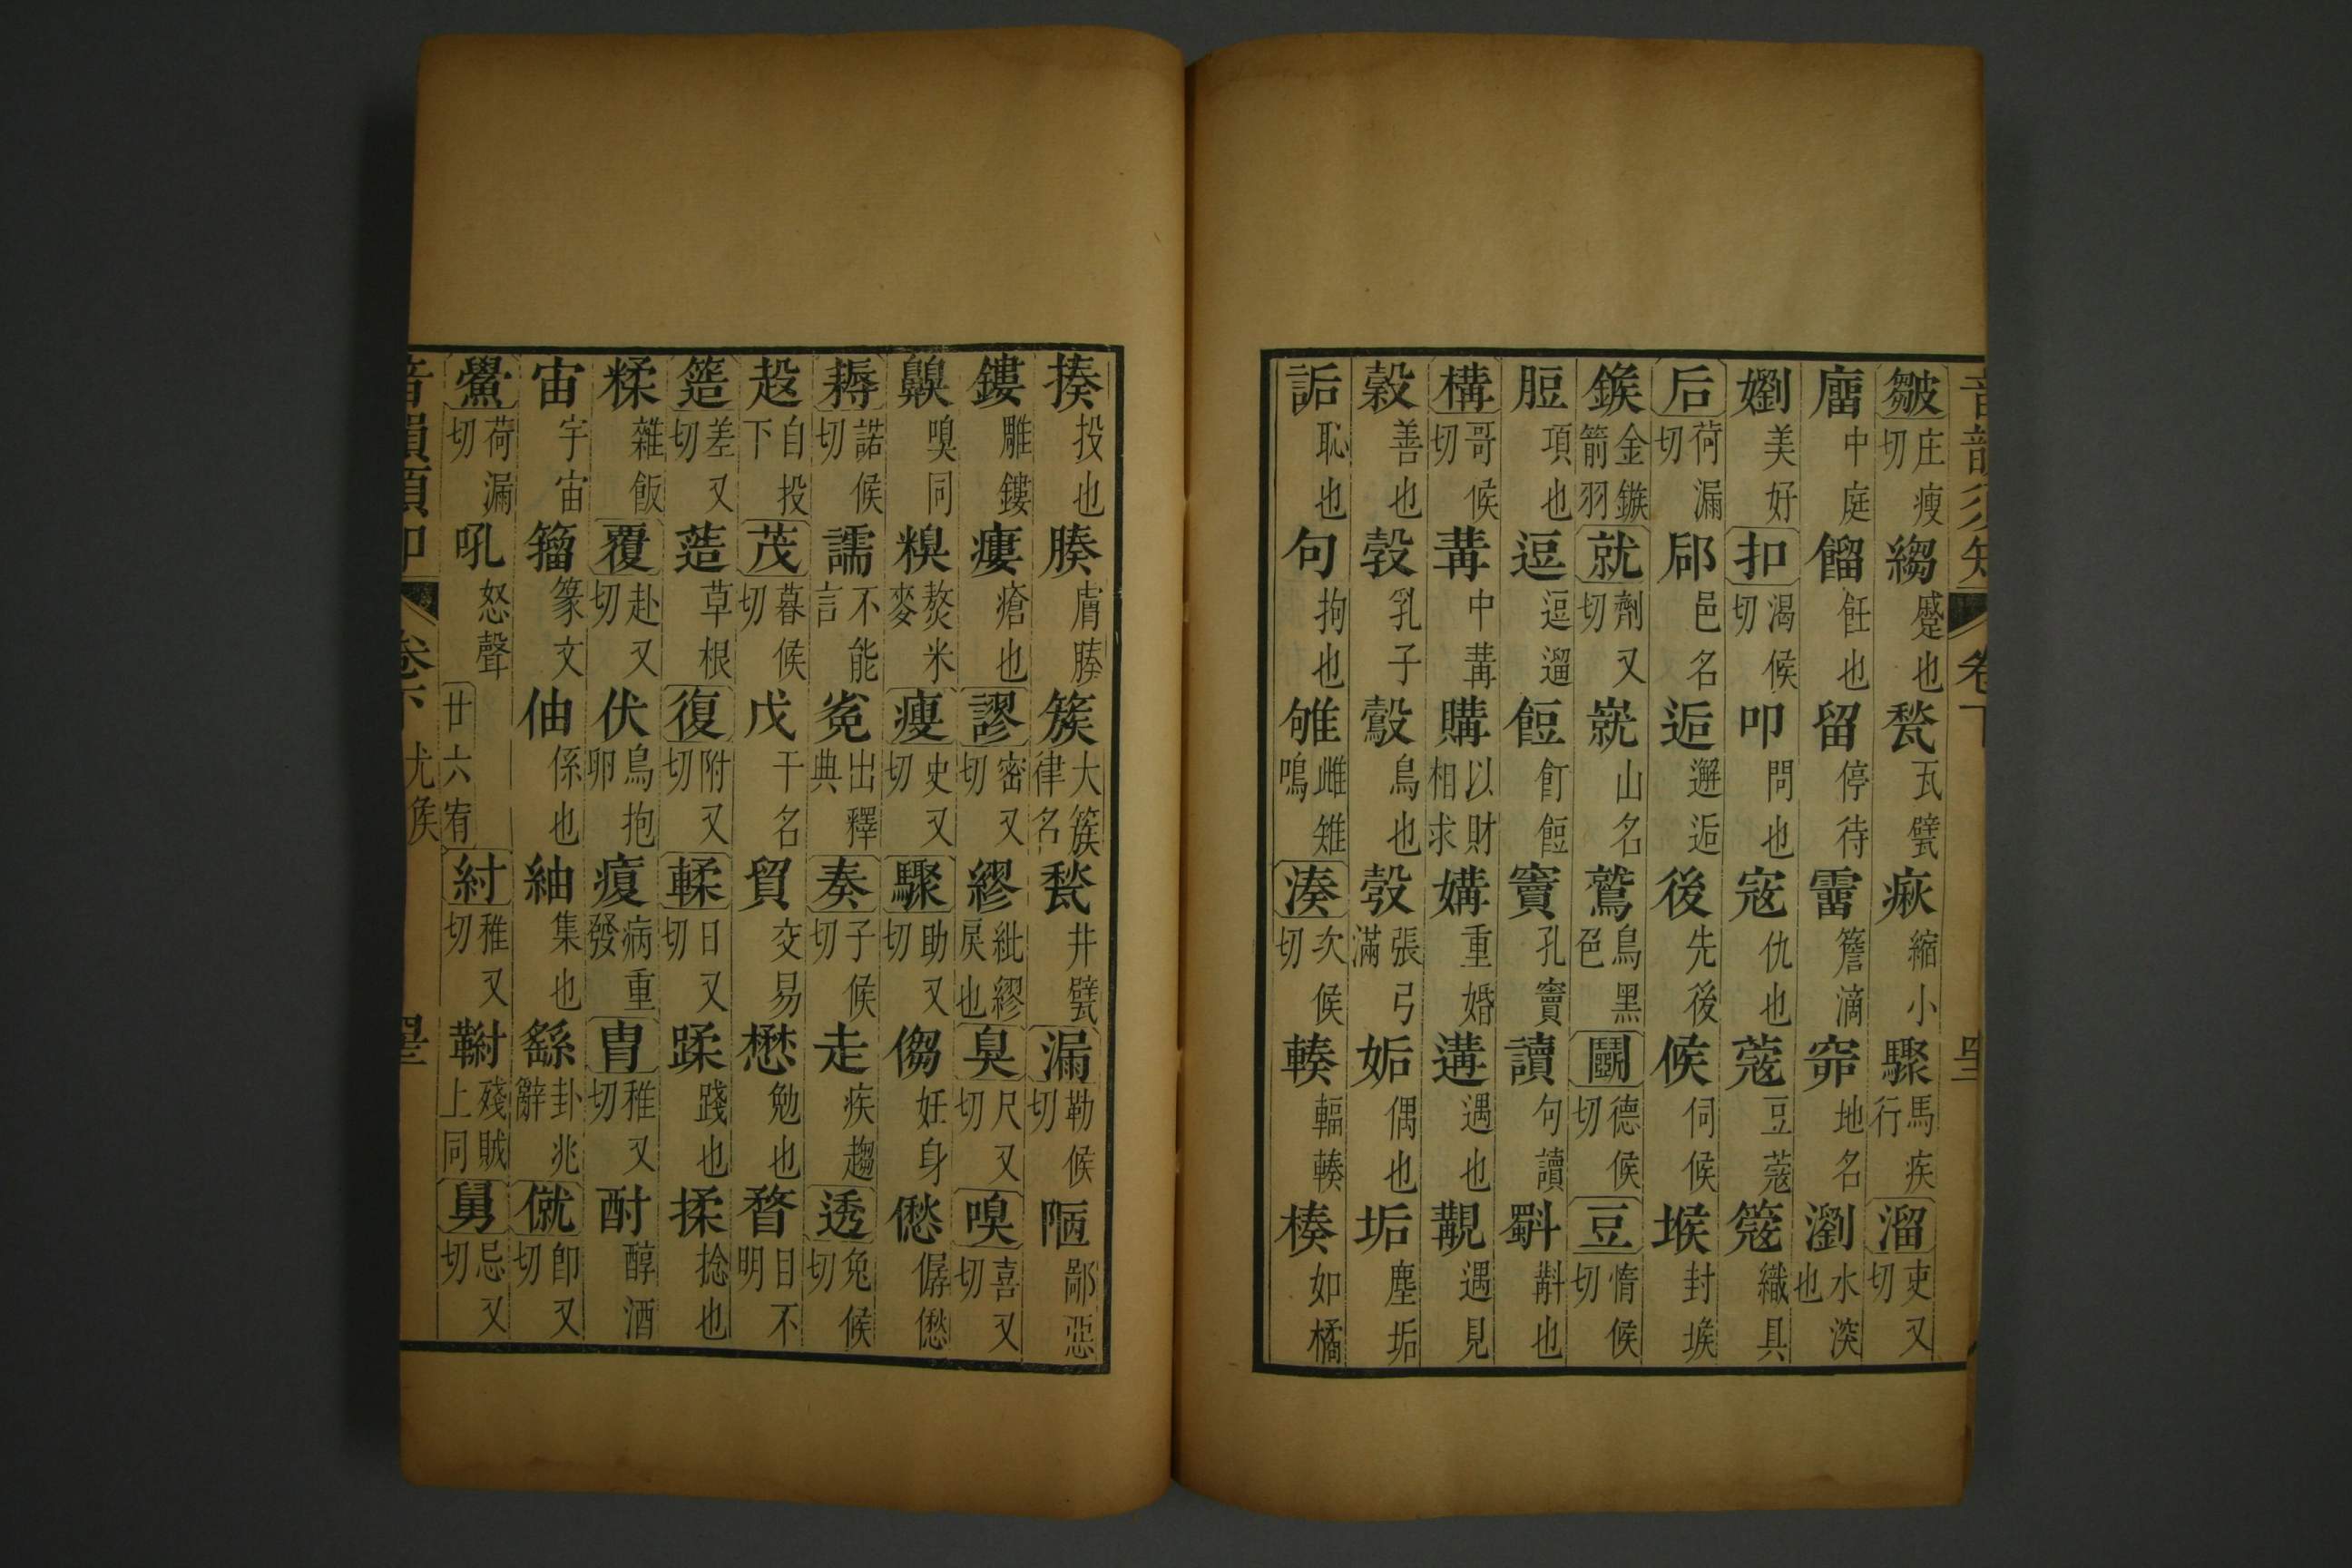 皺庄瘦切縐蹙也甃瓦甓瘷縮小驟馬疾行溜吏又切
廇中庭餾飪也留停待霤簷滴窌地名瀏水深也
嬼美好扣渴候切叩問也寇仇也蔻豆蔻簆織具
后荷漏切郈邑名逅邂逅後先後候伺候堠封堠
鍭金鏃箭羽就劑又切嶯山名鷲鳥黑色鬬德候切豆惰候切
脰項也逗逗遛餖飣餖竇孔竇讀句讀斣斠也
構哥候切冓中冓購以財相求媾重婚遘遇也覯遇見
穀善也㝅乳子鷇鳥也彀張弓滿姤偶也垢塵垢
詬恥也句拘也雊雌雉鳴湊次候切輳輻輳楱如橘
揍投也腠膚腠簇大簇律名甃井甓漏勒候切陋鄙惡
鏤雕鏤瘻瘡也謬密又切繆紕繆戾也臭尺又切嗅喜又切
齅嗅同糗熬米麥瘦史又切驟助又切㑳妊身僽僝僽
耨諾候切譳不能言㝹出釋典奏子候切走疾趨透兔候切
㱿自投下茂暮候切戊干名貿交易懋勉也瞀目不明
簉差又切莥草根復附又切輮日又切蹂踐也揉捻也
糅雜飯覆赴又切伏鳥抱卵㾞病重發胄稚又切酎醇酒
宙宇宙籀篆文伷係也紬集也繇卦兆辭僦卽又切
鱟荷漏切吼怒聲廿六宥紂稚又切䩜殘賊上同舅忌又切
音韻須知卷下尤侯